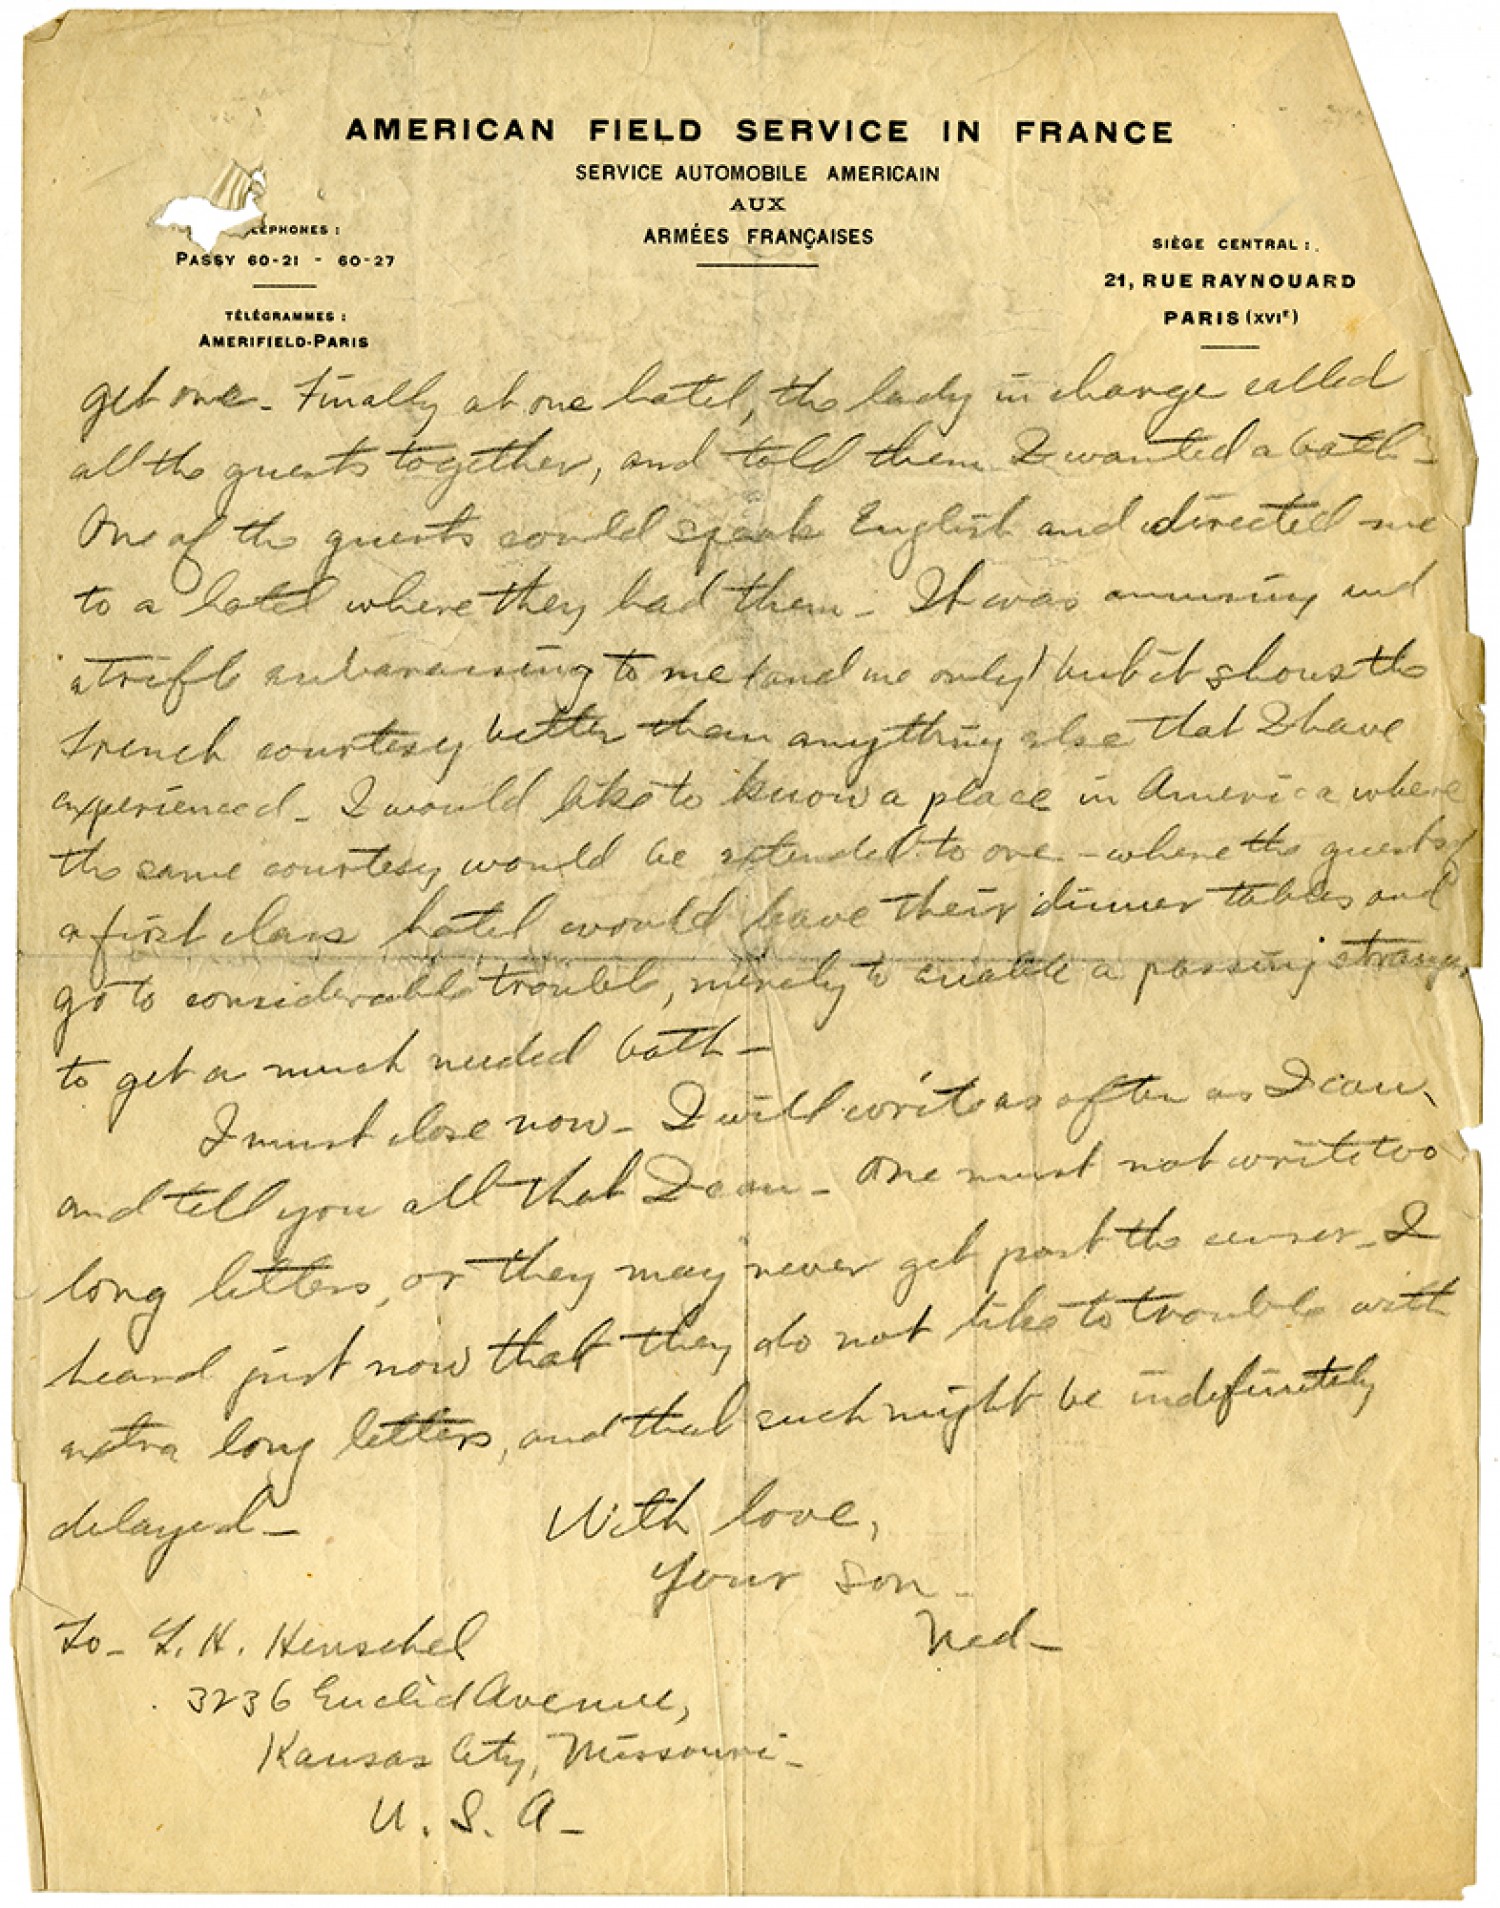 AMERICAN FIELD SERVICE IN FRANCE
SERVICE AUTOMOBILE AMERICAIN
AUX
ARMÉES FRANÇAISES
LÉPHONES :
PASSY 60-21 - 60-27
TÉLÉGRAMMES :
AMERIFIELD-PARIS
SIÈGE CENTRAL :
21, RUE RAYNOUARD
PARIS (XVIE)
get one - Finally at one hotel, the lady in charge called
all the guests together, and told them I wanted a bath -
One of the guests could speak English and directed me
to a hotel where they had them - It was amusing and
a trifle embarassing to me (and me only) but it shows the
French courtesy better than anything else that I have
experienced - I would like to know a place in America where
the same courtesy would be extended to one - where the guests of
a first class hotel would leave their dinner tables and
go to considerable trouble, merely to enable a passing stranger,
to get a much needed bath -
I must close now - I will write as often as I can,
and tell you all that I can - One must not write too
long letters, or they may never get past the censor - I
heard just now that they do not like to trouble with
extra long letters, and that such might be indefinitely
delayed -
With love,
Your son -
Ned -
To - L. H. Henschel
3236 Euclid Avenue,
Kansas City, Missouri -
U. S. A -